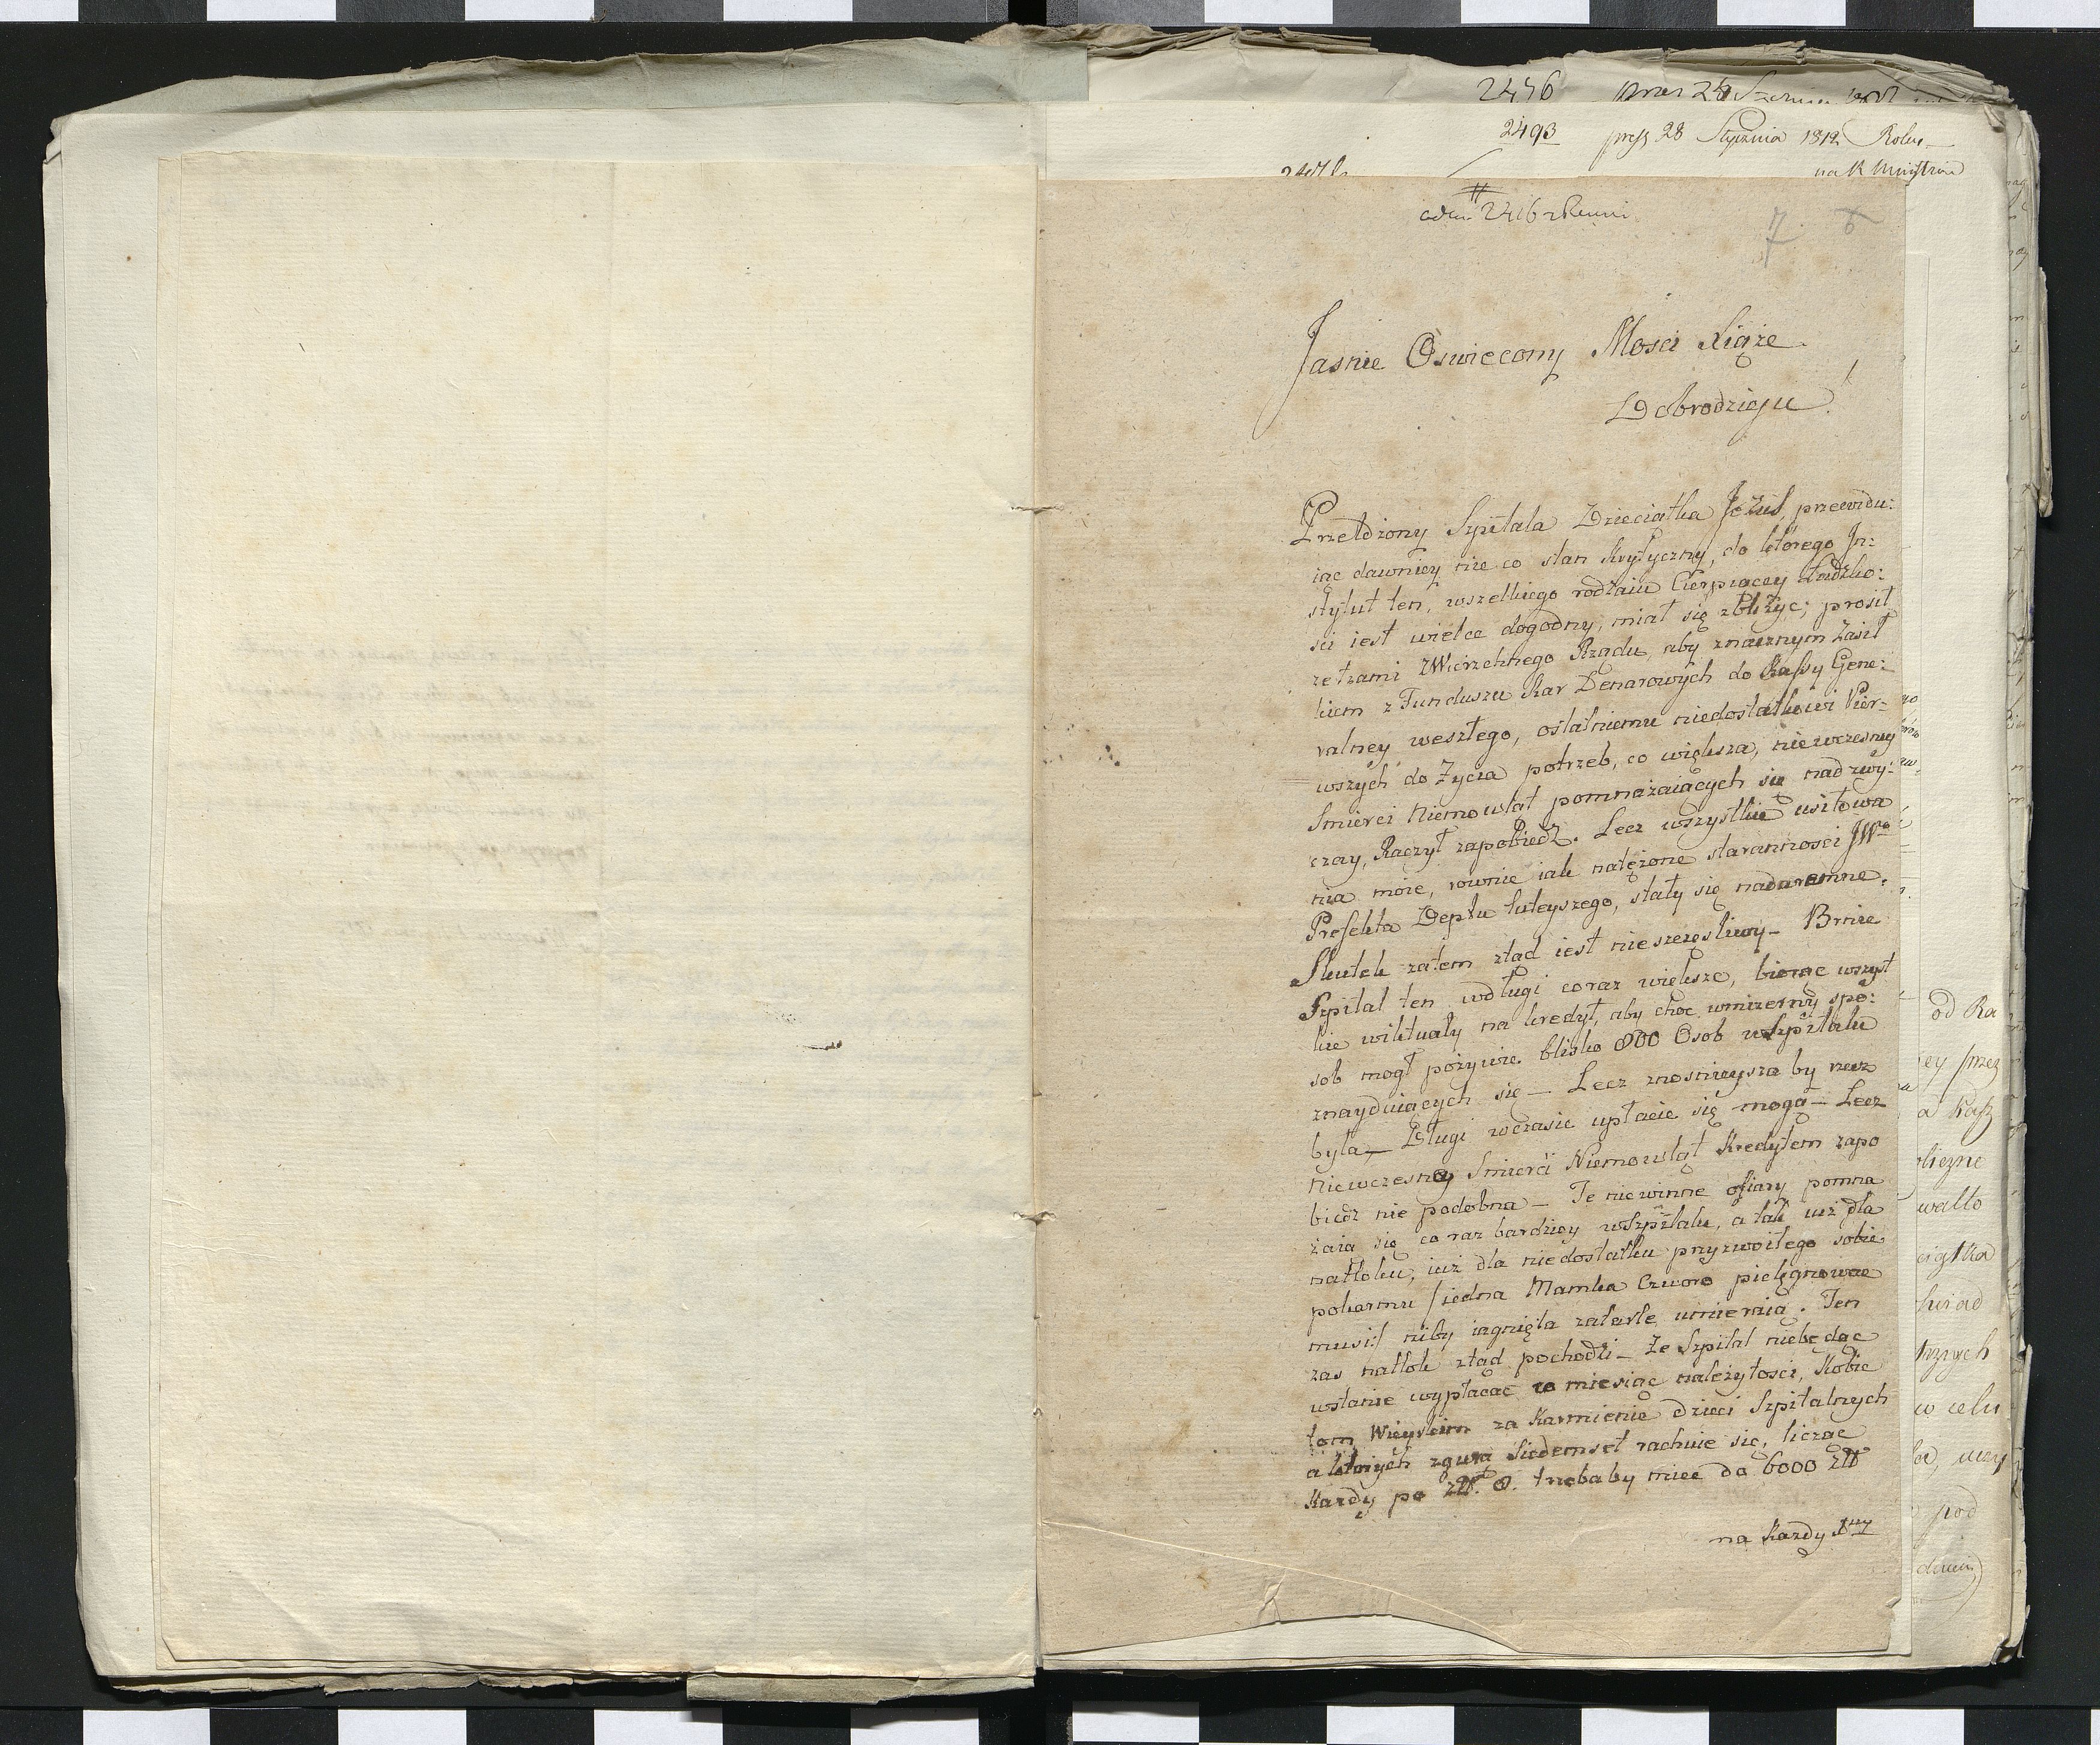 2476
2493 pres 28 Stycznia 1812
7 6
Jasnie Oswiecony Mosci Xiąże
Dobrodzieju!
Przełożony Szpitala Dzieciątka Jezus, przewidu:
iąc dawniey nie co stan krytyczny, do którego In:
stytut ten, wszelkiego rodzaiu Cierpiącey Ludzko:
sci iest wielce dogodny, miał się zbliżyc; prosił
ze łzami Zwierzchnego Rządu, aby znacznym Zasił
kiem z Funduszu Kar Denarowych do Kassy Gene:
ralney weszłego, ostatniemu niedostatkowi Pier-
wszych do Życia potrzeb, co większa, niewczesney
Smierci Niemowląt pomnażaiących się nadzwy:
czay, Raczył zapobiedz. Lecz wszystkie usiłowa
nia moie, rownie iak natężone starannosci JWo
Prefekta Deptu tuteyszego, stały się nadaremne.
Skutek zatem ztąd iest nieszczęsliwy - Brnie
Szpital ten w długi coraz większe, biorąc wszyst
kie wiktuały na kredyt, aby choc w mizerny spo:
sob mogł pożywic blisko 800 Osob w Szpitalu
znayduiących się - Lecz znosnieysza by rzecz
była - Długi w czasie upłacic się mogą - Lecz
niewczesney Smierci Niemowląt Kredytem zapo
biedz nie podobna - Te niewinne ofiary pomna
żaią się co raz bardziey w Szpitalu, a tak iuż dla
natłoku, iuż dla niedostatku przyzwoitego sobie
pokarmu /:iedna Mamka Czworo pielęgnowac
musi:/ niby iagnięta zatarte umieraią. Ten
zas natłok ztąd pochodzi - Że Szpital niebędąc
wstanie wypłacac co miesiąc należytosci, Kobie
tom Wieyskim za Karmienie dzieci Szpitalnych
a ktorych zgurą Siedemset rachuie się, licząc
Kazdy po Zł. 8. trzeba by miec do 6000 Zł
na Kazdy
od Ra
ey przez